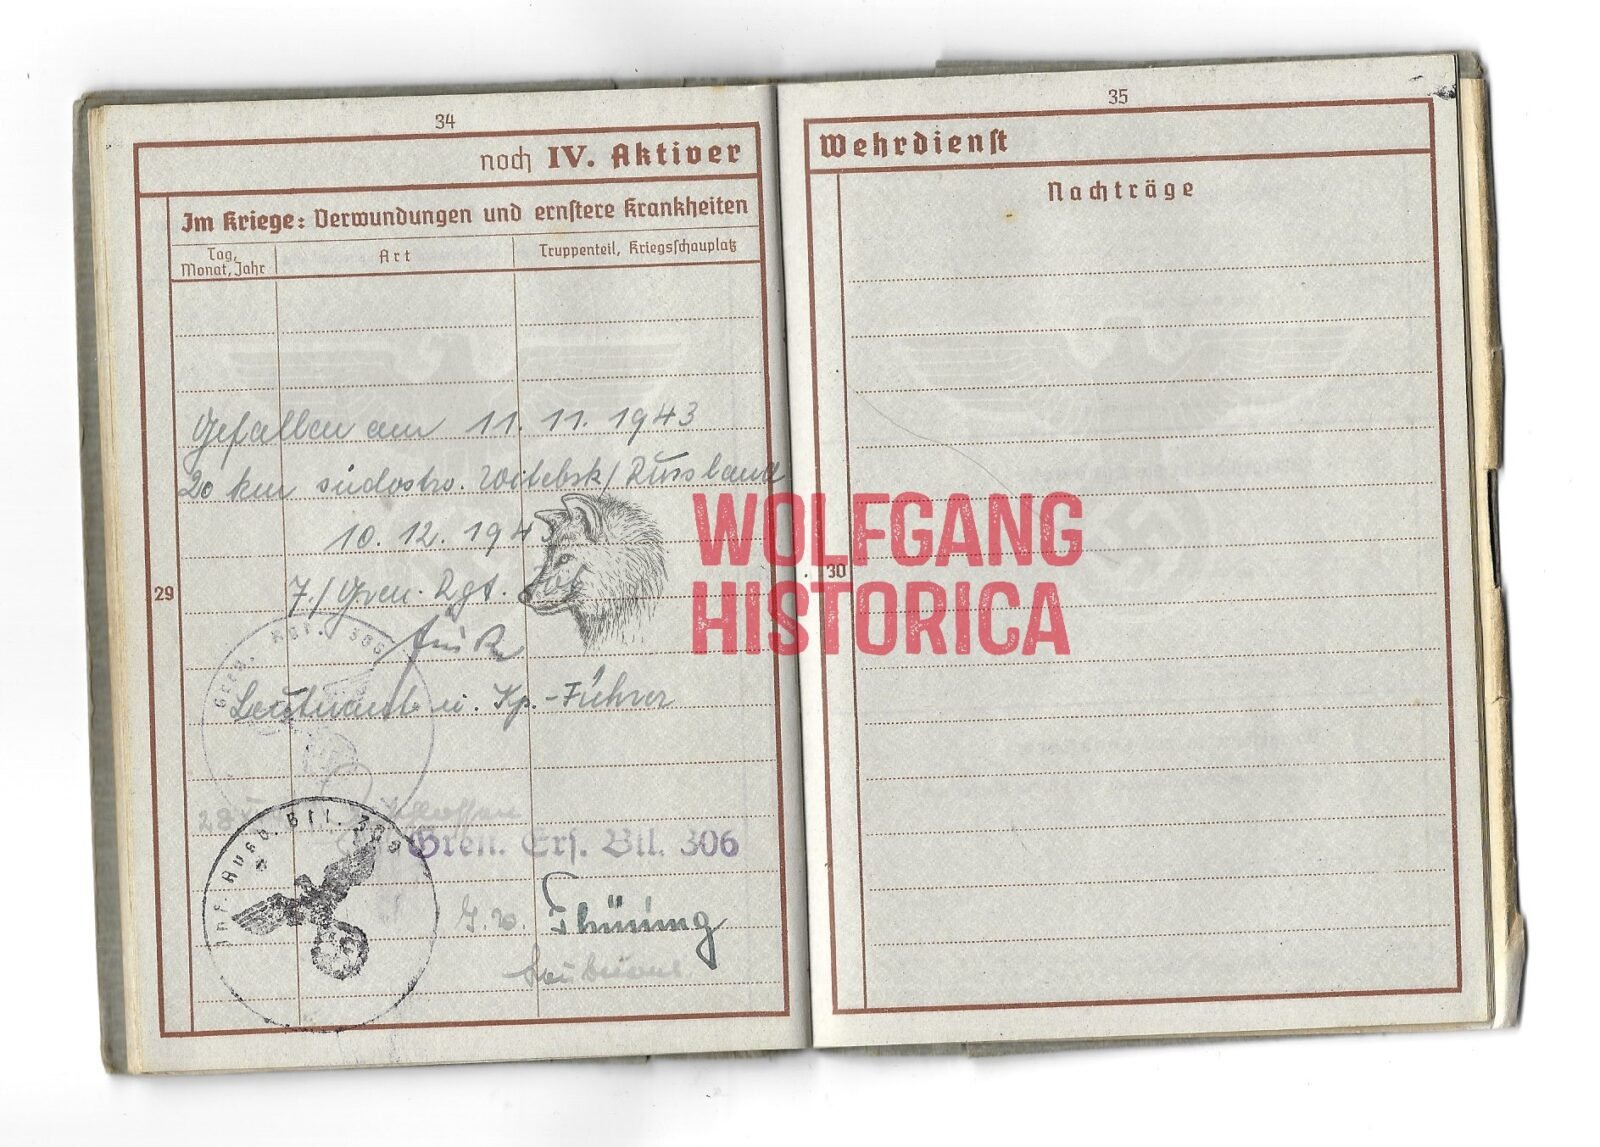 34
noch IV. Aktiver
Im Kriege: Verwundungen und ernstere Krankheiten
Tag, Monat, Jahr
Art
Truppenteil, Kriegsschauplatz
Gefallen am 11. 11. 1943
20 km südostw. Witebsk/Russland
10. 12. 194
7./Gren. Rgt.
Leutnant u. Kp.-Führer
29
Gren. Ers. Btl. 306
Inf. Ausb. Btl.
35
Wehrdienst
Nachträge
30
WOLFGANG
HISTORICA